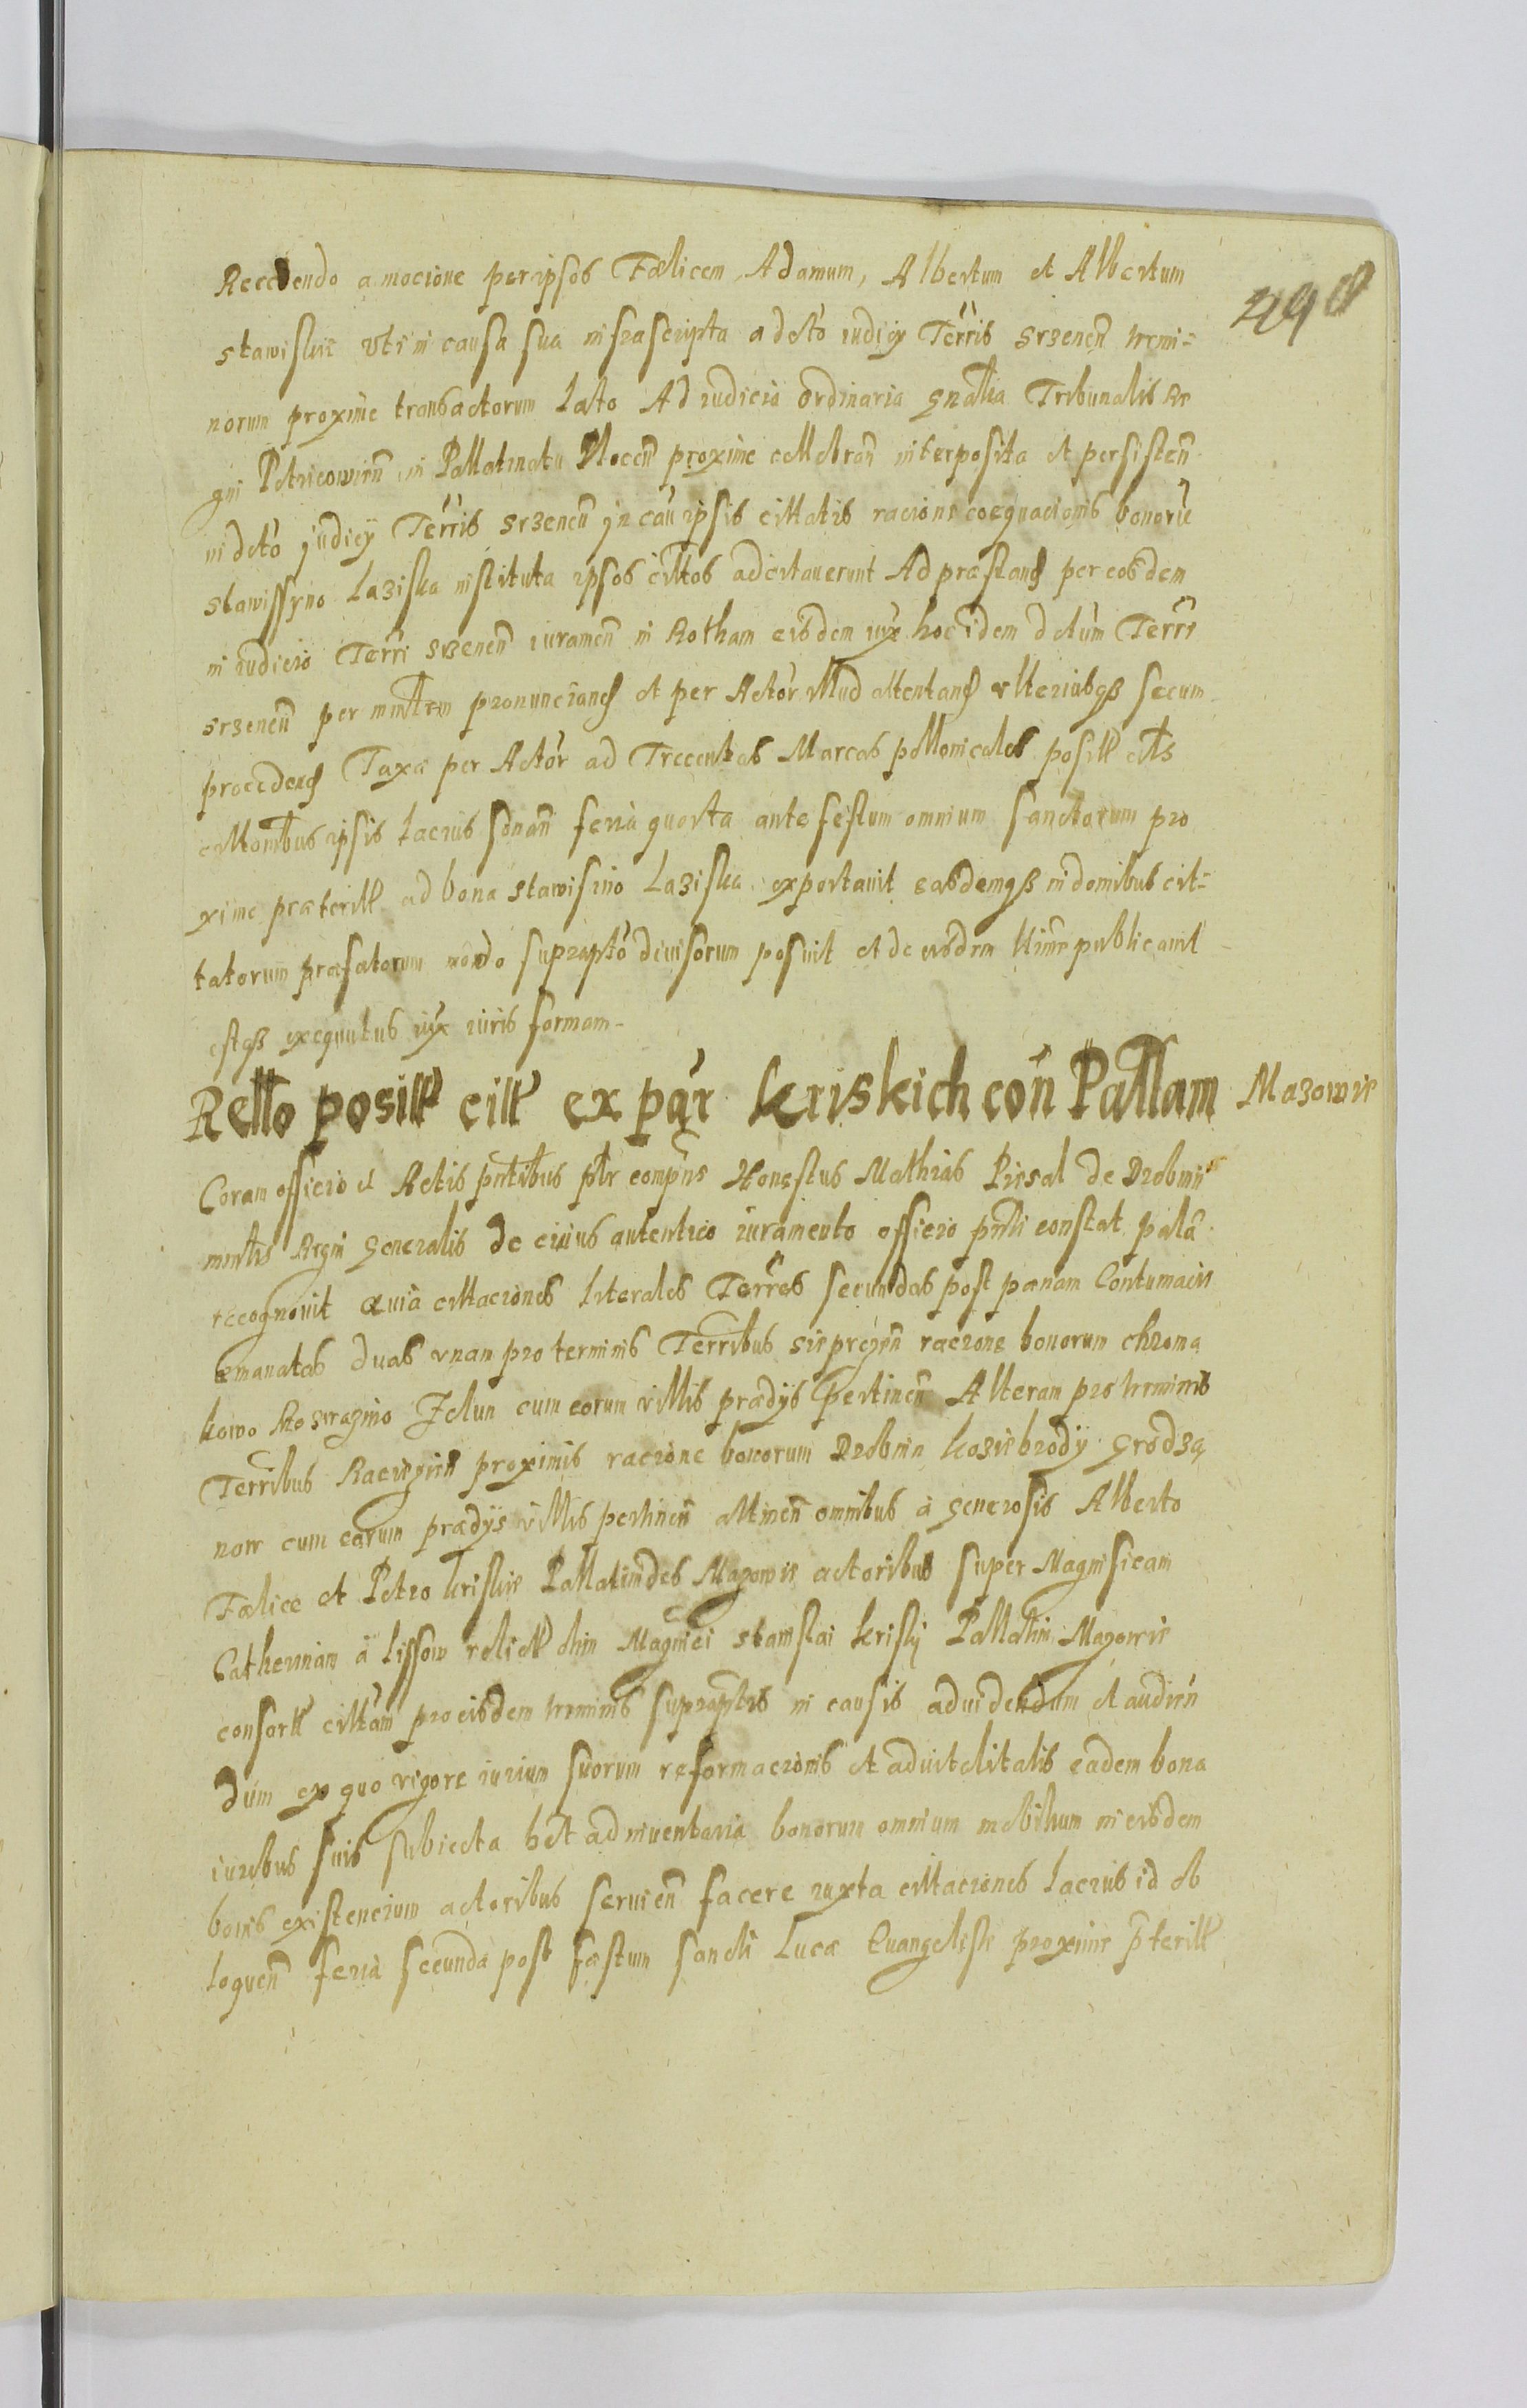 Recedendo a mocione per ipsos Fælicem, Adamum, Albertum et Albertum
498
stawiskie vti in causa sua infrascripta a dcto iudicij Terris srzenen̄ termi=
norum proxime transactorum lato Ad iudicia ordinaria gnalia Tribunalis Re
gni Petricowien̄ in Pallatinatu Plocen̄ proxime cellebran̄ interposita et persisten̄
in dcto judicij Terris srzenen̄ in cau ipsis cittatis racione coequacionis bonorū
stawissyno Laziska instituta ipsos cittos adcitauerunt Ad præstand per eosdem
in iudicio Terri srzenen̄ iuramen̄ in Rotham eisdem iux hoc idem dctum Terri
srzenen̄ per mintrm pronunciand et per Actor illud attentand vlteriusqß secum
procedend Taxa per Actor ad Trecentas Marcas pollonicales posill cits
cittonibus ipsis lacius sonan̄ feria quarta ante festum omnium sanctorum pro
xime præterill ad bona stawisino Laziska exportauit easdemqß in domibus cit=
tatorum præfatorum modo suprapto diuisorum posuit et de eisdem ltime publicauit
estqß exequutus iux iuris formam
Rello posill cill ex par kriskich con Pallam Mazowie
Coram officio et Actis pntibus ptr compns Honestus Mathias Piesal de Drobnin
mintrs Regni generalis de cuius autentico iuramento officio pnti constat palā
recognouit quia cittaciones literales Terres secundas post pænam Contumacie
emanatas duas vnam pro terminis Terribus sieprczen̄ racione bonorum chroma
kowo Rosciragno Zelun cum eorum villis prædijs pertinen̄ Alteram pro terminis
Terribus Raciezien̄ proximis racione bonorum Drobnin koziebrody grodza
now cum earum prædijs villis pertinen̄ attinen̄ omnibus à generosis Alberto
Fælice et Petro kriskie Pallatinides Mazowie actoribus super Magnificam
Catherinam à lissow relict olim Magnici stanislai kriski Pallatin Mazowie
consortē cittam pro eisdem terminis supraptis in causis ad uidendum et audien
dum ex quo vigore iurium suorum reformacionis et aduitalitatis eadem bona
iuribus suis subiecta het ad inuentaria bonorum omnium mobilium in eisdem
bonis existencium actoribus seruien̄ facere iuxta cittaciones lacius id ob
loquen̄ feria secunda post fæstum sancti Lucæ Euangeliste proxime pterill